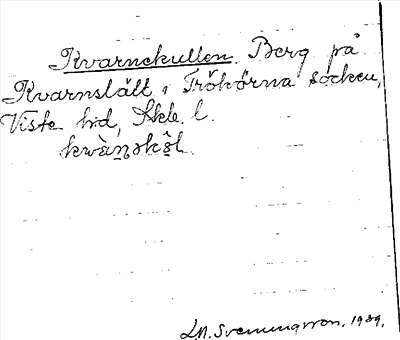 Kvarnekullen. Berg på
Kvarnslätt i Trökörna socken,
Viste hd, Skbl. l.
kwὰṉəkὸ̱l.
L.M. Svenungsson. 1939.